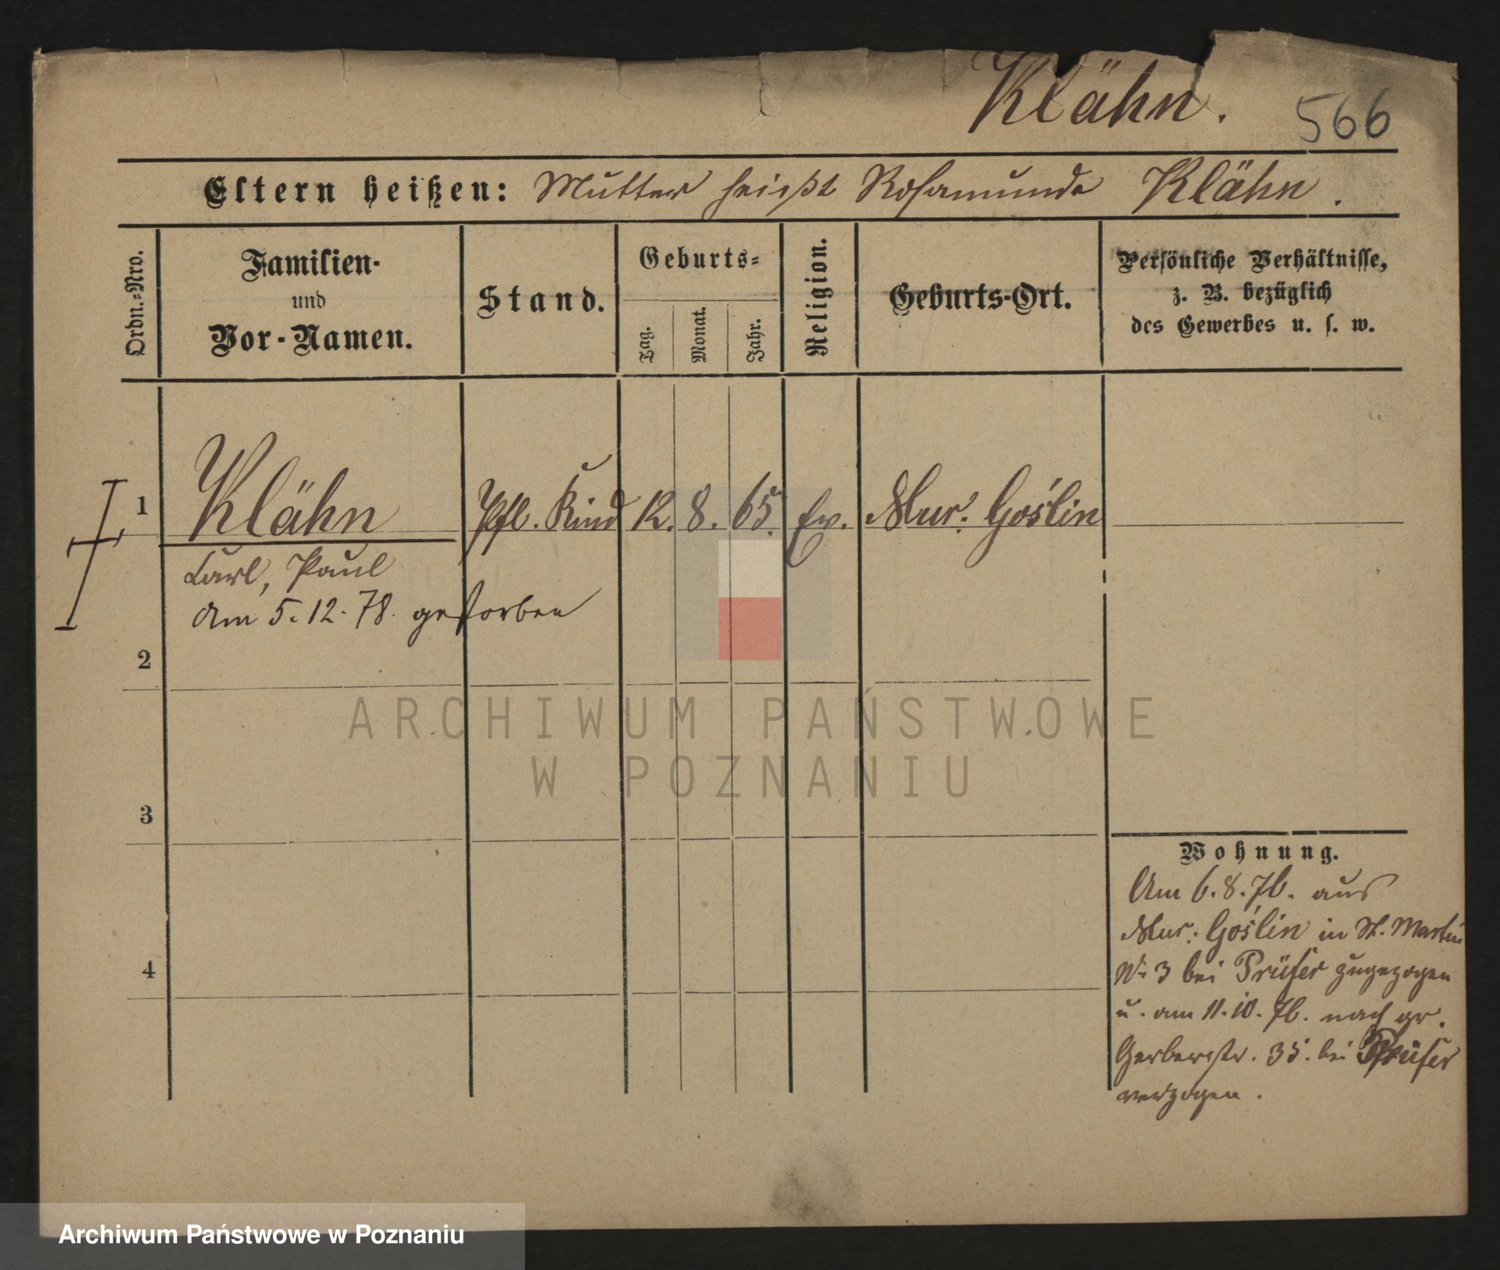 Klähn.
566
Eltern heißen: Mutter heißt Rosamunde Klähn.
Ordn.-Nro.
Familien-
und
Vor-Namen.
Stand.
Geburts-
Tag.
Monat.
Jahr.
Religion.
Geburts-Ort.
Persönliche Verhältnisse,
z. B. bezüglich
des Gewerbes u. s. w.
1 Klähn Pfl. Kind 12. 8. 65. Ev. Mur. Goślin
Carl, Paul
Am 5.12.78. gestorben
2
3
4
Wohnung.
Am 6.8.76. aus
Mur. Goślin in St. Martin
No 3 bei Prüfer zugezogen
u. am 11.10.76. nach gr.
Gerberstr. 35. bei Prüfer
verzogen.
ARCHIWUM PAŃSTWOWE
W POZNANIU
Archiwum Państwowe w Poznaniu